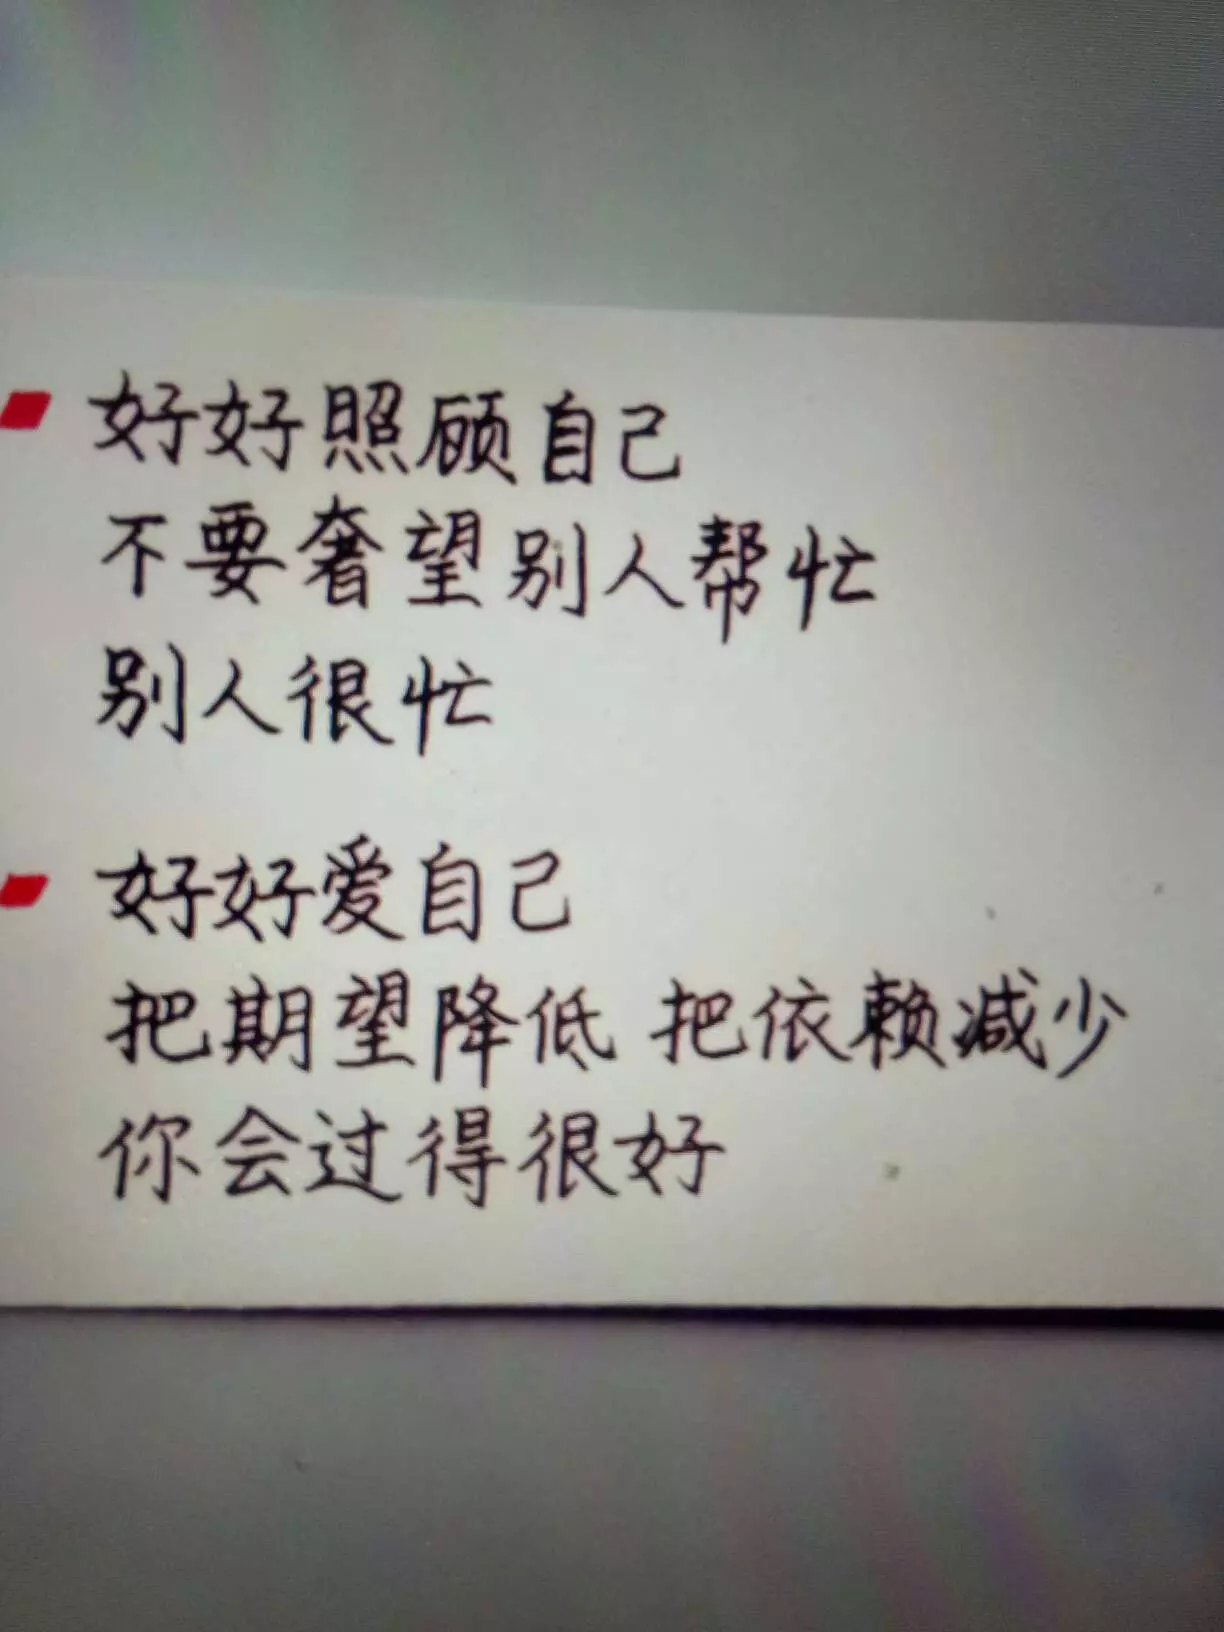 好好照顾自己
不要奢望别人帮忙
别人很忙
好好爱自己
把期望降低 把依赖减少
你会过得很好